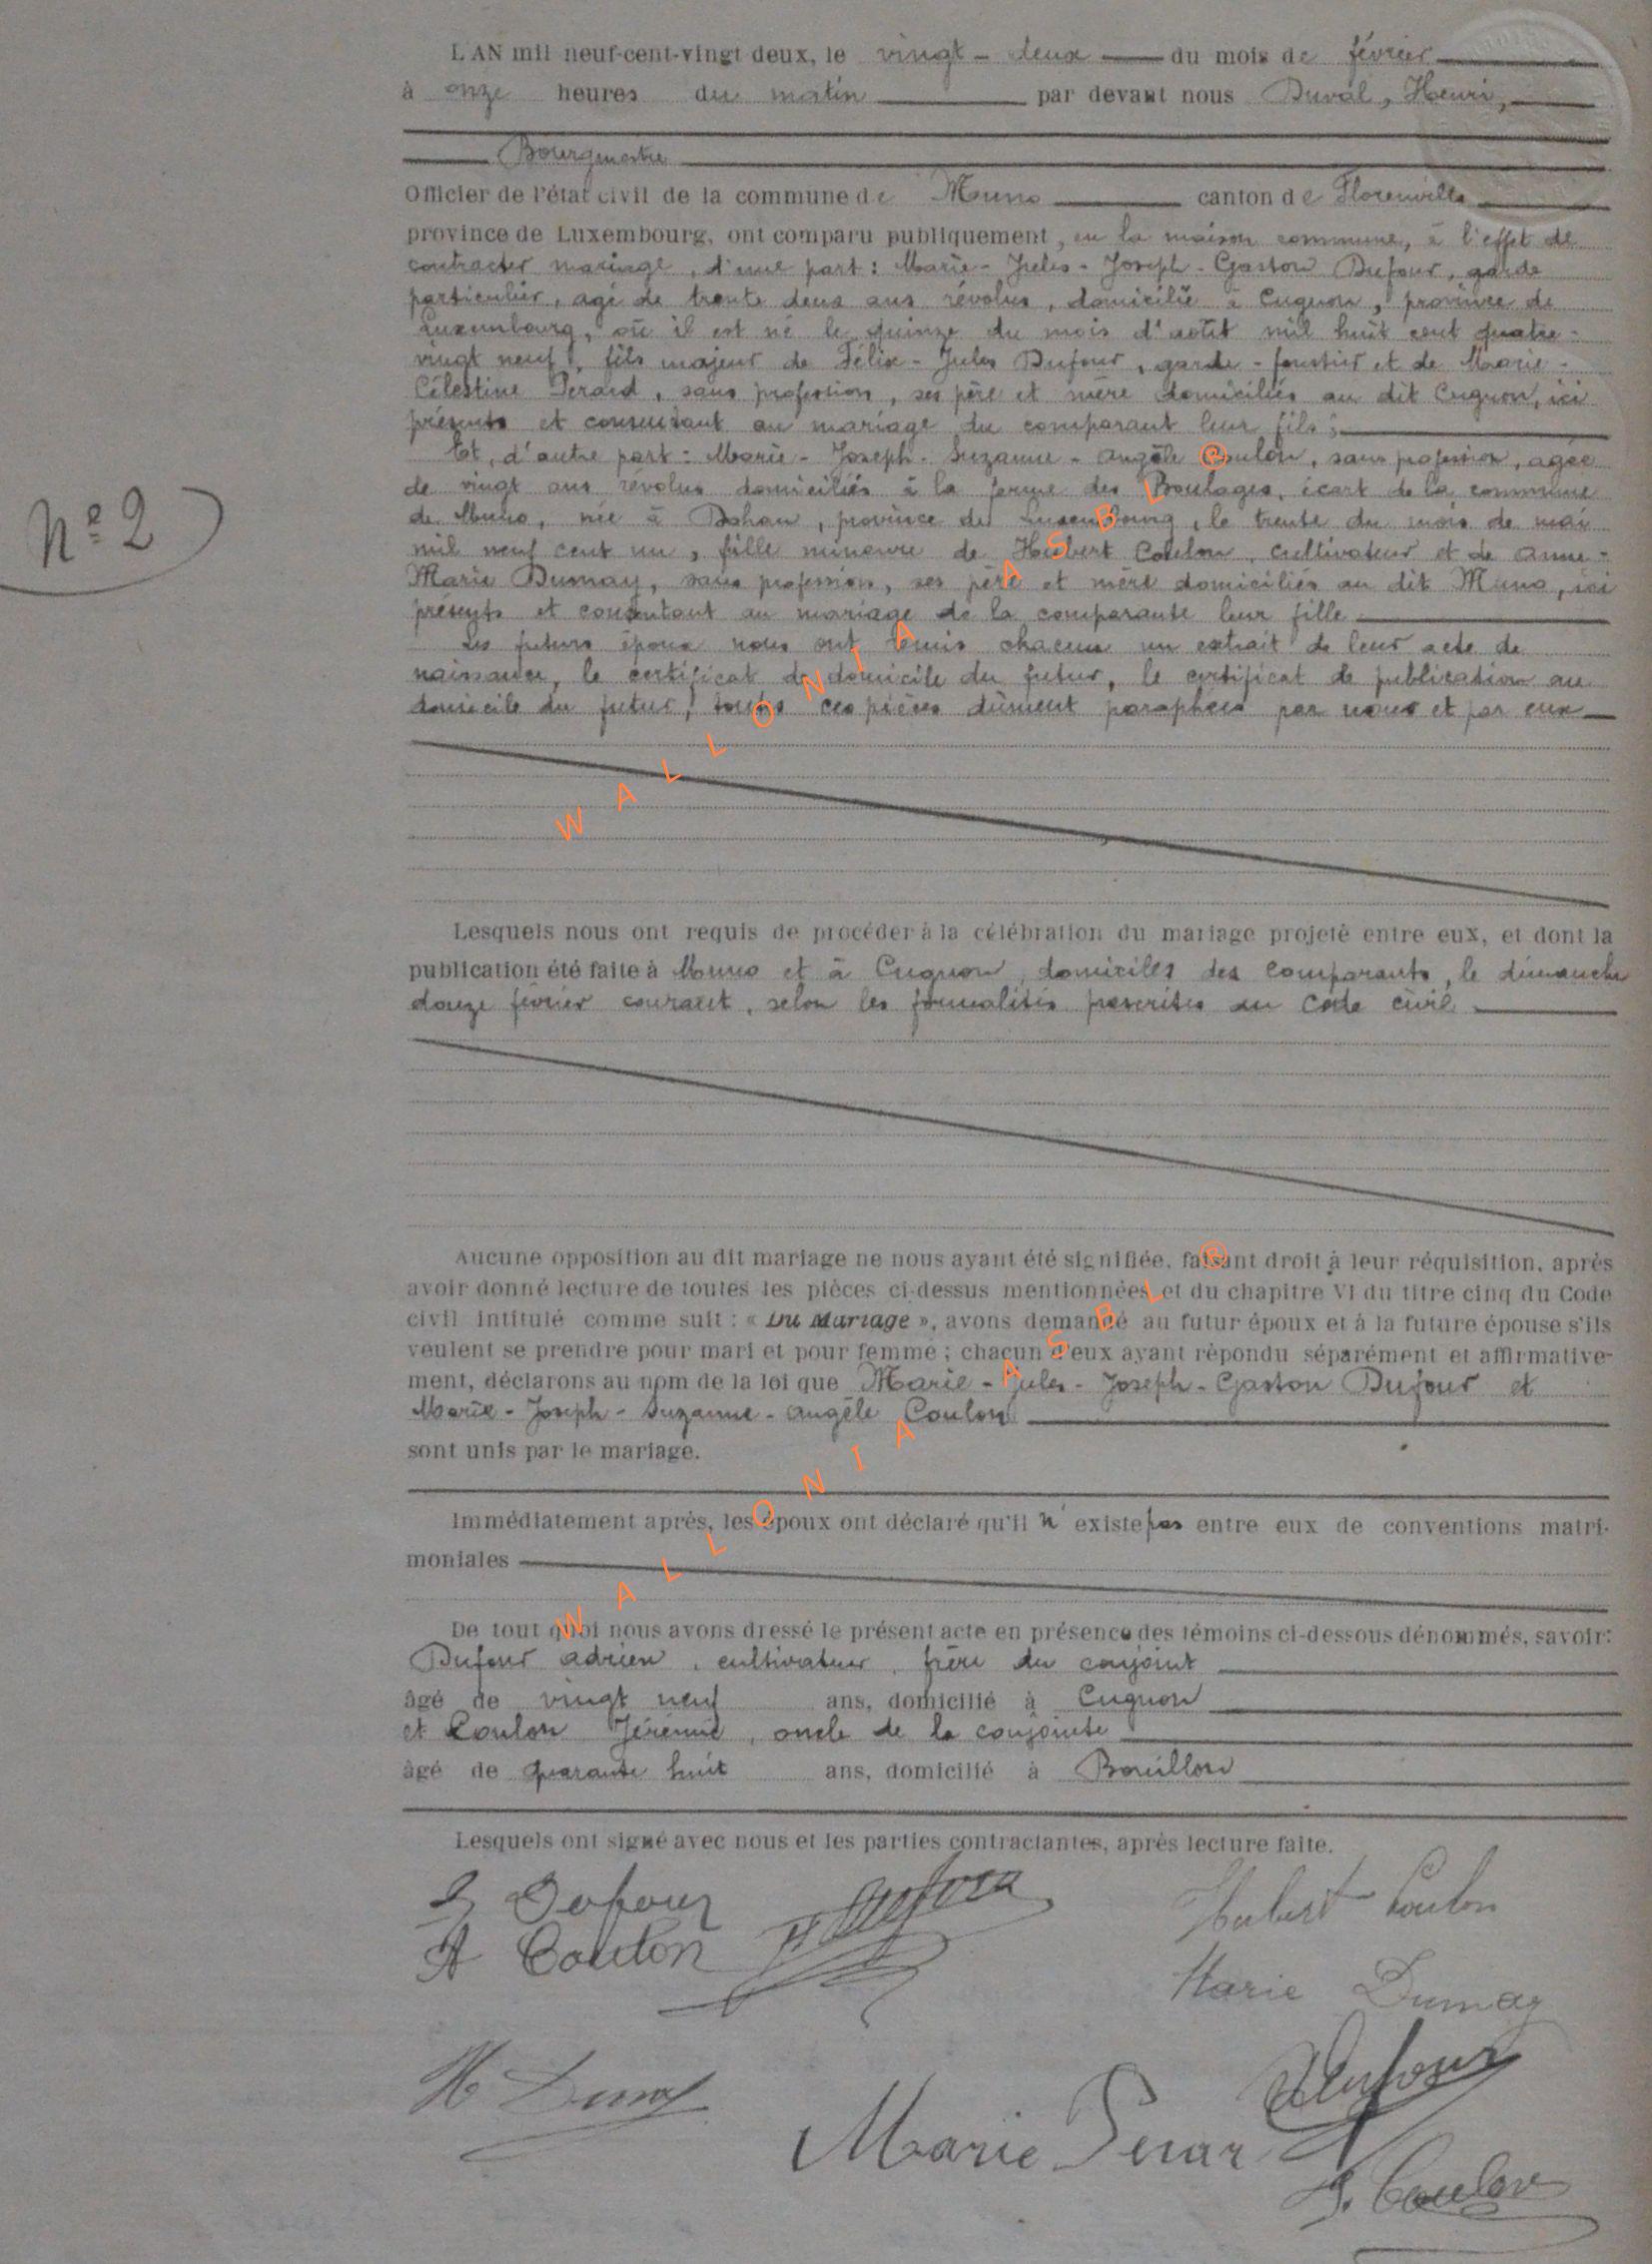 L'AN mil neuf-cent-vingt deux, le vingt - deux du mois de février
à onze heures du matin par devant nous Duval, Henri,
Bourgmestre
Officier de l'état civil de la commune de Muno canton de Florenville
province de Luxembourg, ont comparu publiquement, en la maison commune, à l'effet de
contracter mariage, d'une part : Marie - Jules - Joseph - Gaston Dufour, garde
particulier, agé de trente deux ans révolus, domicilié à Cugnon, province de
Luxembourg, où il est né le quinze du mois d'août mil huit cent quatre-
vingt neuf, fils majeur de Félix - Jules Dufour, garde - forestier et de Marie -
Célestine Perard, sans profession, ses père et mère domiciliés au dit Cugnon, ici
présents et consentant au mariage du comparant leur fils ;
Et, d'autre part : Marie - Joseph - Suzanne - Angèle Coulon, sans profession, agée
de vingt ans révolus domiciliés à la ferme des Boulages, écart de la commune
de Muno, née à Dohan, province de Luxembourg, le trente du mois de mai
mil neuf cent un, fille mineure de Hubert Coulon, cultivateur et de Anne -
Marie Dumay, sans profession, ses père et mère domiciliés au dit Muno, ici
présents et consentant au mariage de la comparante leur fille
Les futurs époux nous ont remis chacun un extrait de leur acte de
naissance, le certificat de domicile du futur, le certificat de publication au
domicile du futur, toutes ces pièces dûment paraphées par nous et par eux
Nº 2
Lesquels nous ont requis de procéder à la célébration du mariage projeté entre eux, et dont la
publication été faite à Muno et à Cugnon, domiciles des comparants, le dimanche
douze février courant, selon les formalités prescrites au Code civil
Aucune opposition au dit mariage ne nous ayant été signifiée, faisant droit à leur réquisition, après
avoir donné lecture de toutes les pièces ci-dessus mentionnées et du chapitre VI du titre cinq du Code
civil intitulé comme suit : « Du Mariage », avons demandé au futur époux et à la future épouse s'ils
veulent se prendre pour mari et pour femme ; chacun d'eux ayant répondu séparément et affirmative-
ment, déclarons au nom de la loi que Marie - Jules - Joseph - Gaston Dufour et
Marie - Joseph - Suzanne - Angèle Coulon
sont unis par le mariage.
Immédiatement après, les époux ont déclaré qu'il n'existe pas entre eux de conventions matri-
moniales
De tout quoi nous avons dressé le présent acte en présence des témoins ci-dessous dénommés, savoir:
Dufour Adrien, cultivateur, frère du conjoint
âgé de vingt neuf ans, domicilié à Cugnon
et Coulon Jérémie, oncle de la conjointe
âgé de quarante huit ans, domicilié à Bouillon
Lesquels ont signé avec nous et les parties contractantes, après lecture faite.
Dufour
Hubert Coulon
A Coulon
Marie Dumay
H Duval
ADufour
Marie Perard
J. Coulon
WALLONIA ASBL ®
WALLONIA ASBL ®